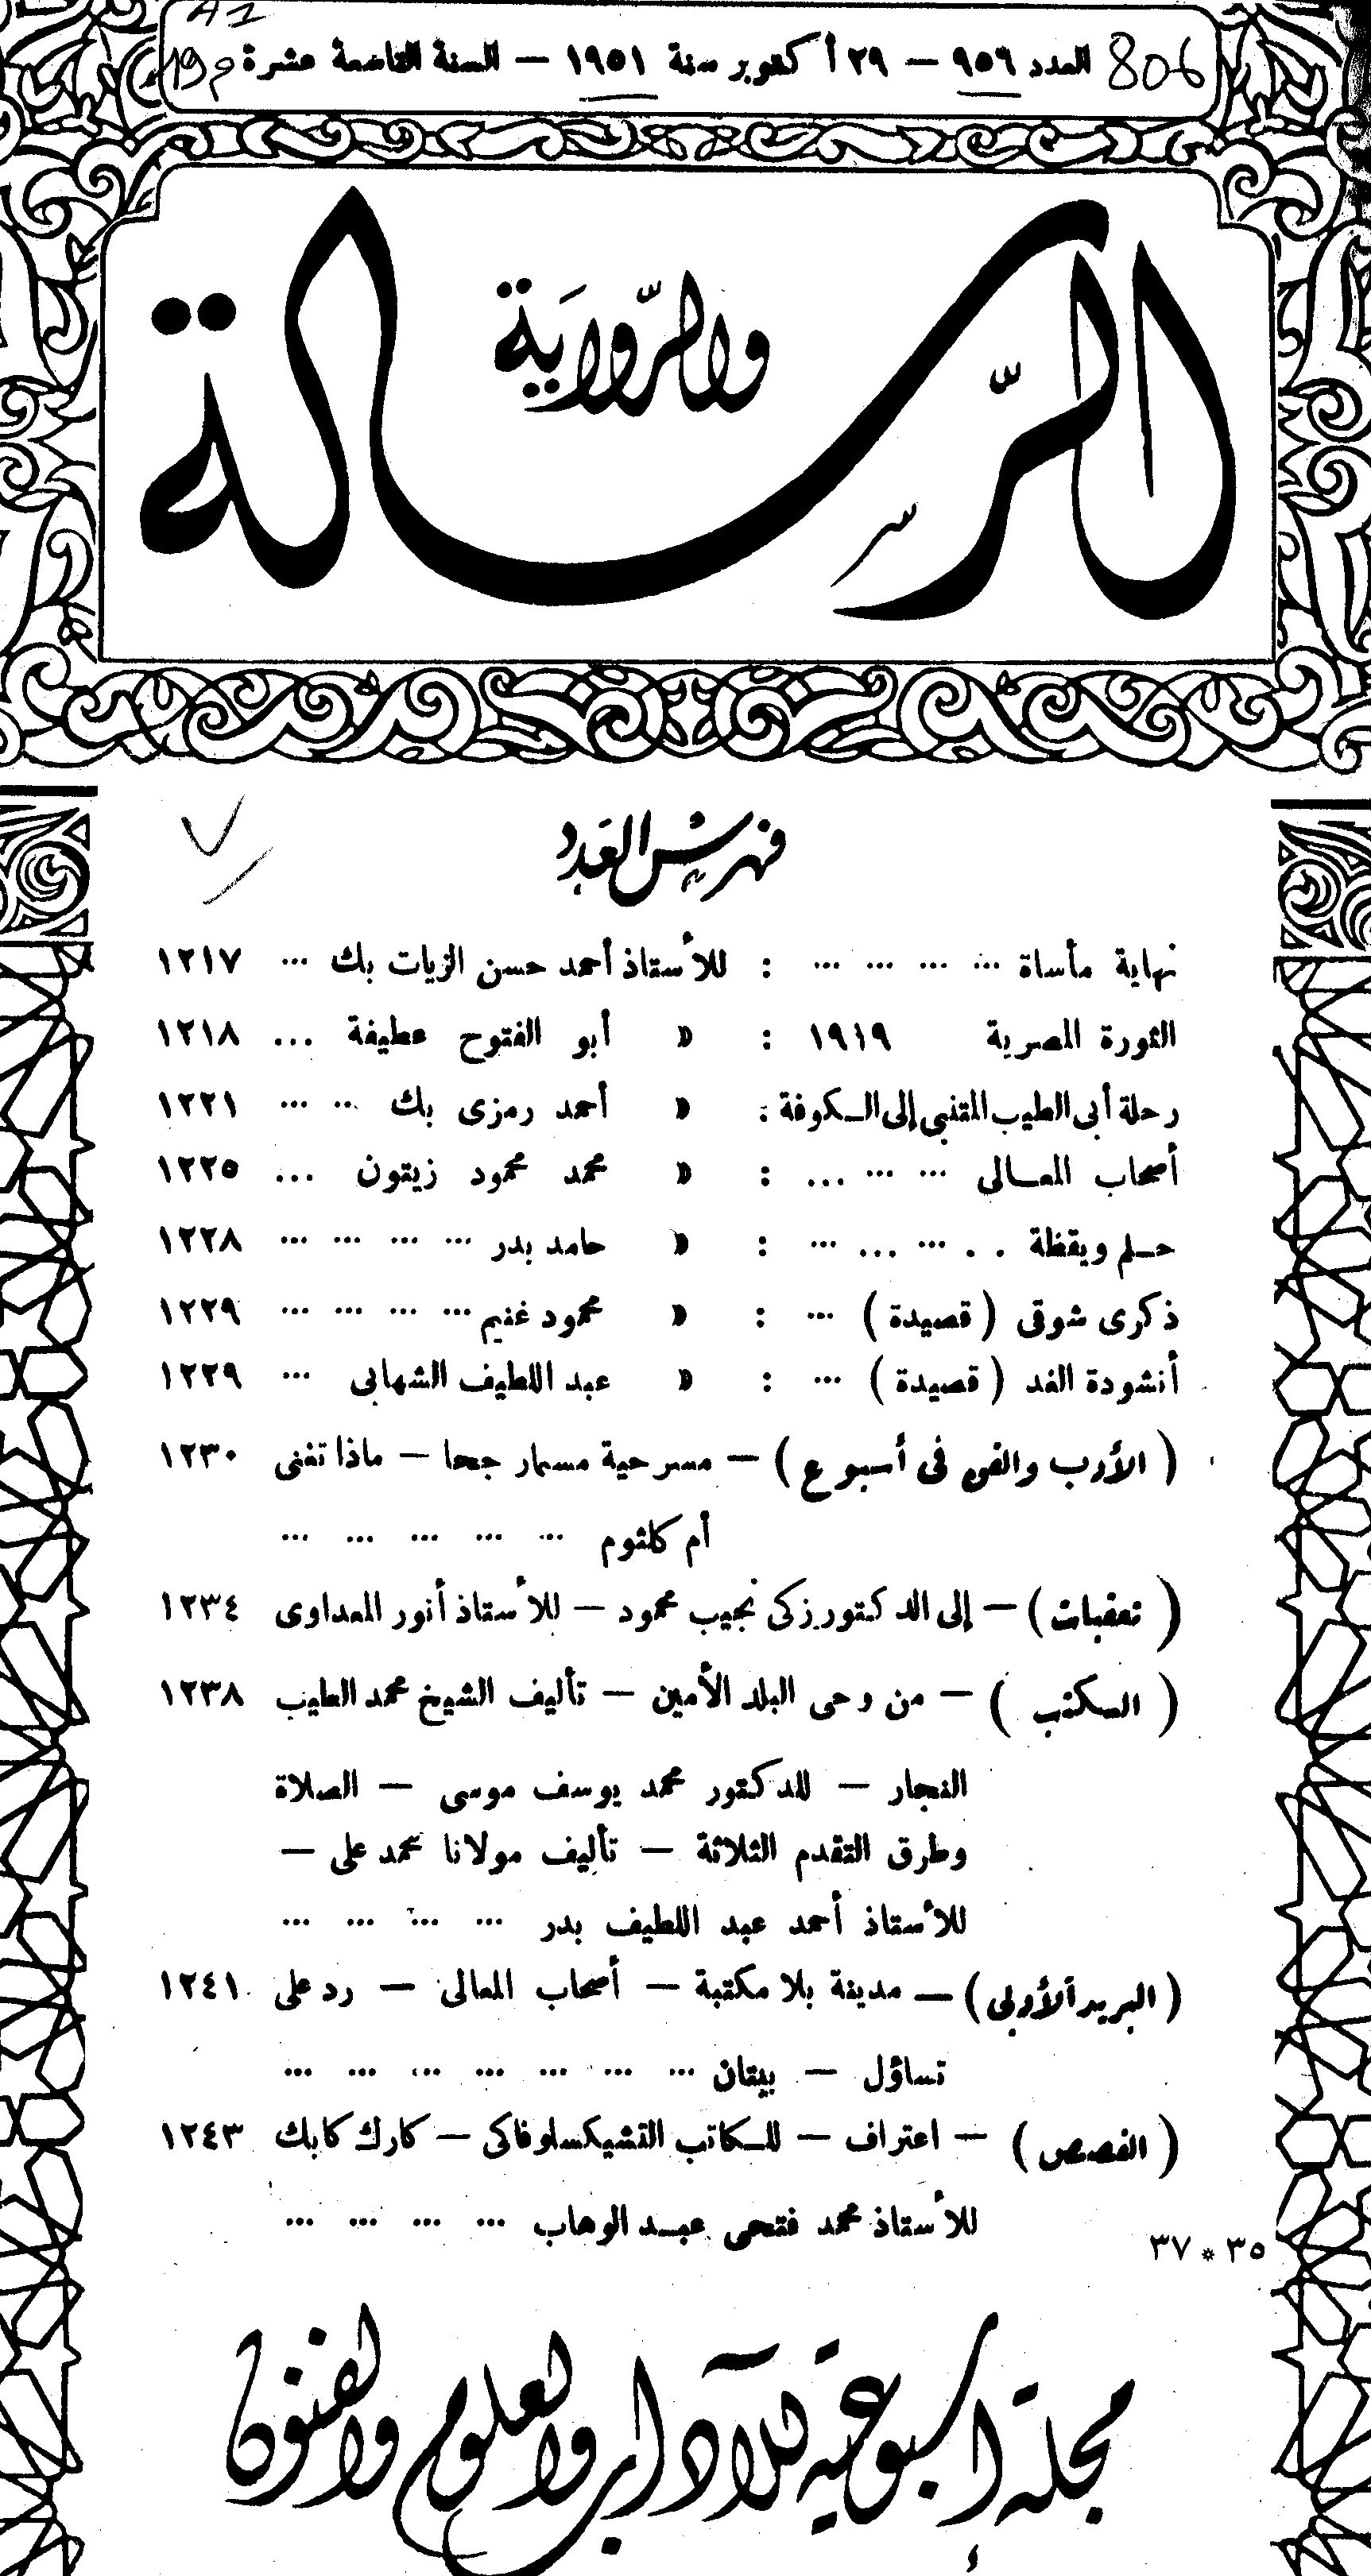 806 العدد ٩٥٦ — ٢٩ أكتوبر سنة ١٩٥١ — السنة التاسعة عشرة
الرسالة
والرواية
فهرس العدد
نهاية مأساة ... ... ... ... : للأستاذ أحمد حسن الزيات بك ... ١٢١٧
الثورة المصرية ١٩١٩ : » أبو الفتوح عطيفة ... ١٢١٨
رحلة أبى الطيب المتنبى إلى الكوفة : » أحمد رمزى بك ... ... ١٢٢١
أصحاب المعالى ... ... ... : » محمد محمود زيتون ... ١٢٢٥
حلم ويقظة . . ... ... ... : » حامد بدر ... ... ... ... ١٢٢٨
ذكرى شوقى ( قصيدة ) ... : » محمود غنيم ... ... ... ... ١٢٢٩
أنشودة الغد ( قصيدة ) ... : » عبد اللطيف الشهابى ... ١٢٢٩
( الأدب والفن فى أسبوع ) — مسرحية مسمار جحا — ماذا تغنى ١٢٣٠
أم كلثوم ... ... ... ... ...
( تعقيبات ) — إلى الدكتور زكى نجيب محمود — للأستاذ أنور المعداوى ١٢٣٤
( الكتب ) — من وحى البلد الأمين — تأليف الشيخ محمد الطيب ١٢٣٨
النجار — للدكتور محمد يوسف موسى — الصلاة
وطرق التقدم الثلاثة — تأليف مولانا محمد على —
للأستاذ أحمد عبد اللطيف بدر ... ... ... ...
( البريد الأدبى ) — مدينة بلا مكتبة — أصحاب المعالى — رد على ١٢٤١
تساؤل — بيتان ... ... ... ... ... ... ...
( القصص ) — اعتراف — للكاتب التشيكسلوفاكى — كارك كابك ١٢٤٣
للأستاذ محمد فتحى عبد الوهاب ... ... ... ...
٣٥ * ٣٧
مجلة أسبوعية للآداب والعلوم والفنون